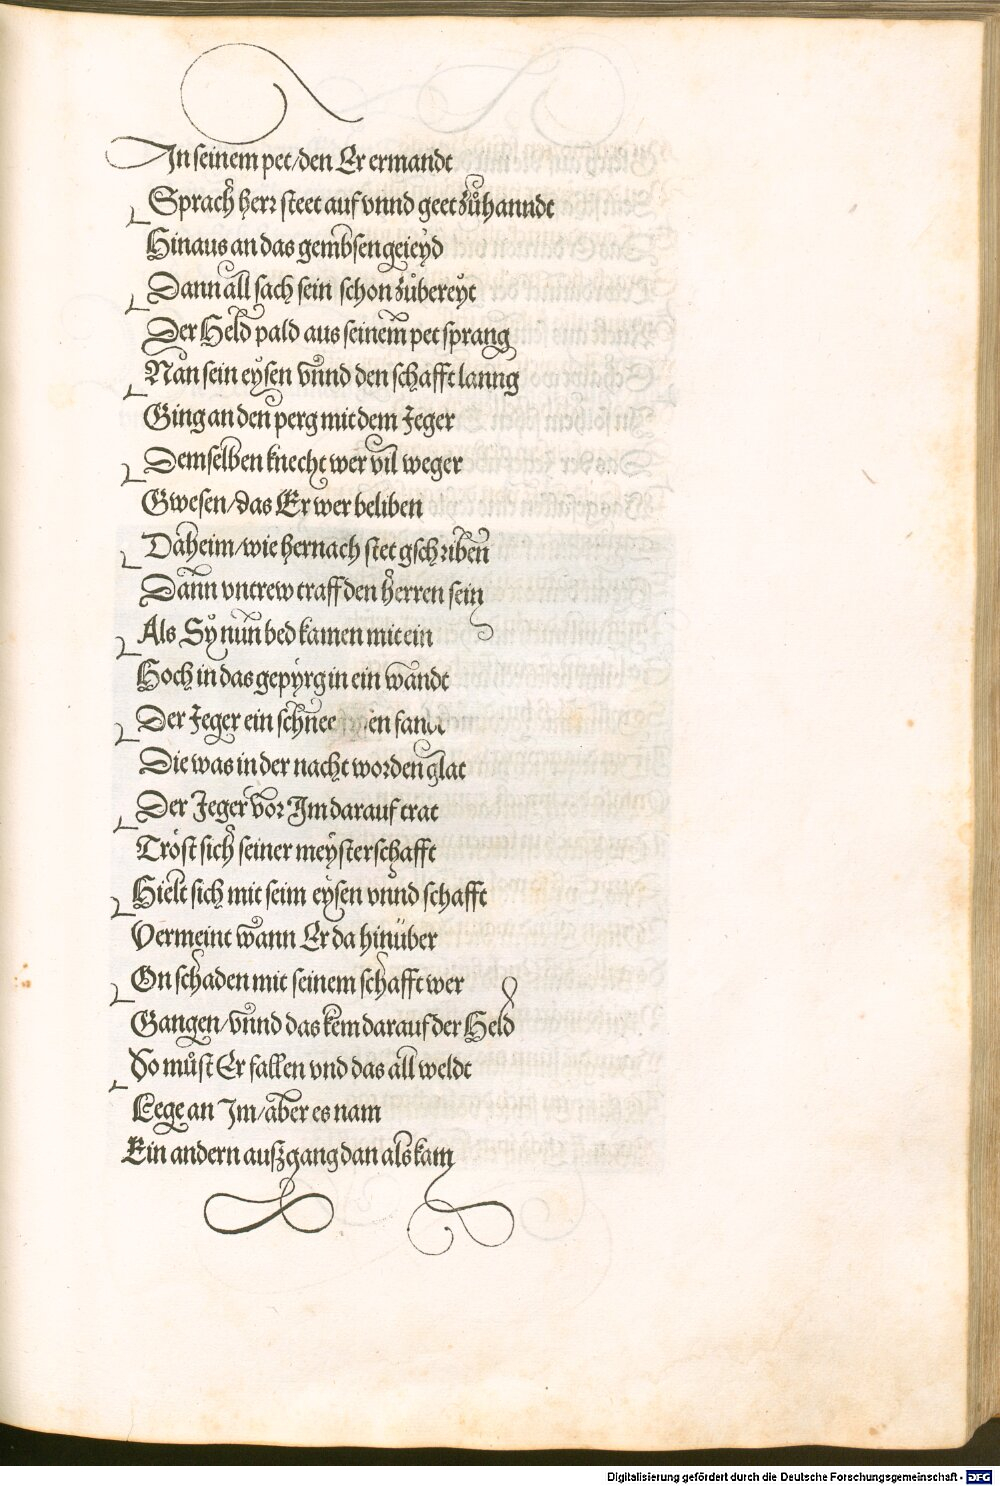 In seinem pet/den Er ermandt
Sprach herr steet auf vnnd geet zůhanndt
Hinaus an das gembsen geieyd
Dann all sach sein schon zůbereyt
Der Held pald aus seinem pet sprang
Nan sein eysen vnnd den schafft lanng
Ging an den perg mit dem Jeger
Demselben knecht wer vil weger
Gwesen/das Er wer beliben
Daheim/wie hernach stet gschriben
Dann vntrew traff den herren sein
Als Sy nun bed kamen mit ein
Hoch in das gepyrg in ein wandt
Der Jeger ein schnee en fandt
Die was in der nacht worden glat
Der Jeger vor Im darauf trat
Tröst sich seiner meysterschafft
Hielt sich mit seim eysen vnnd schafft
Vermeint wann Er da hinüber
On schaden mit seinem schafft wer
Gangen/vnnd das kem darauf der Held
So můst Er fallen vnd das all weldt
Lege an Im/aber es nam
Ein andern außgang dan als kam
Digitalisierung gefördert durch die Deutsche Forschungsgemeinschaft - DFG